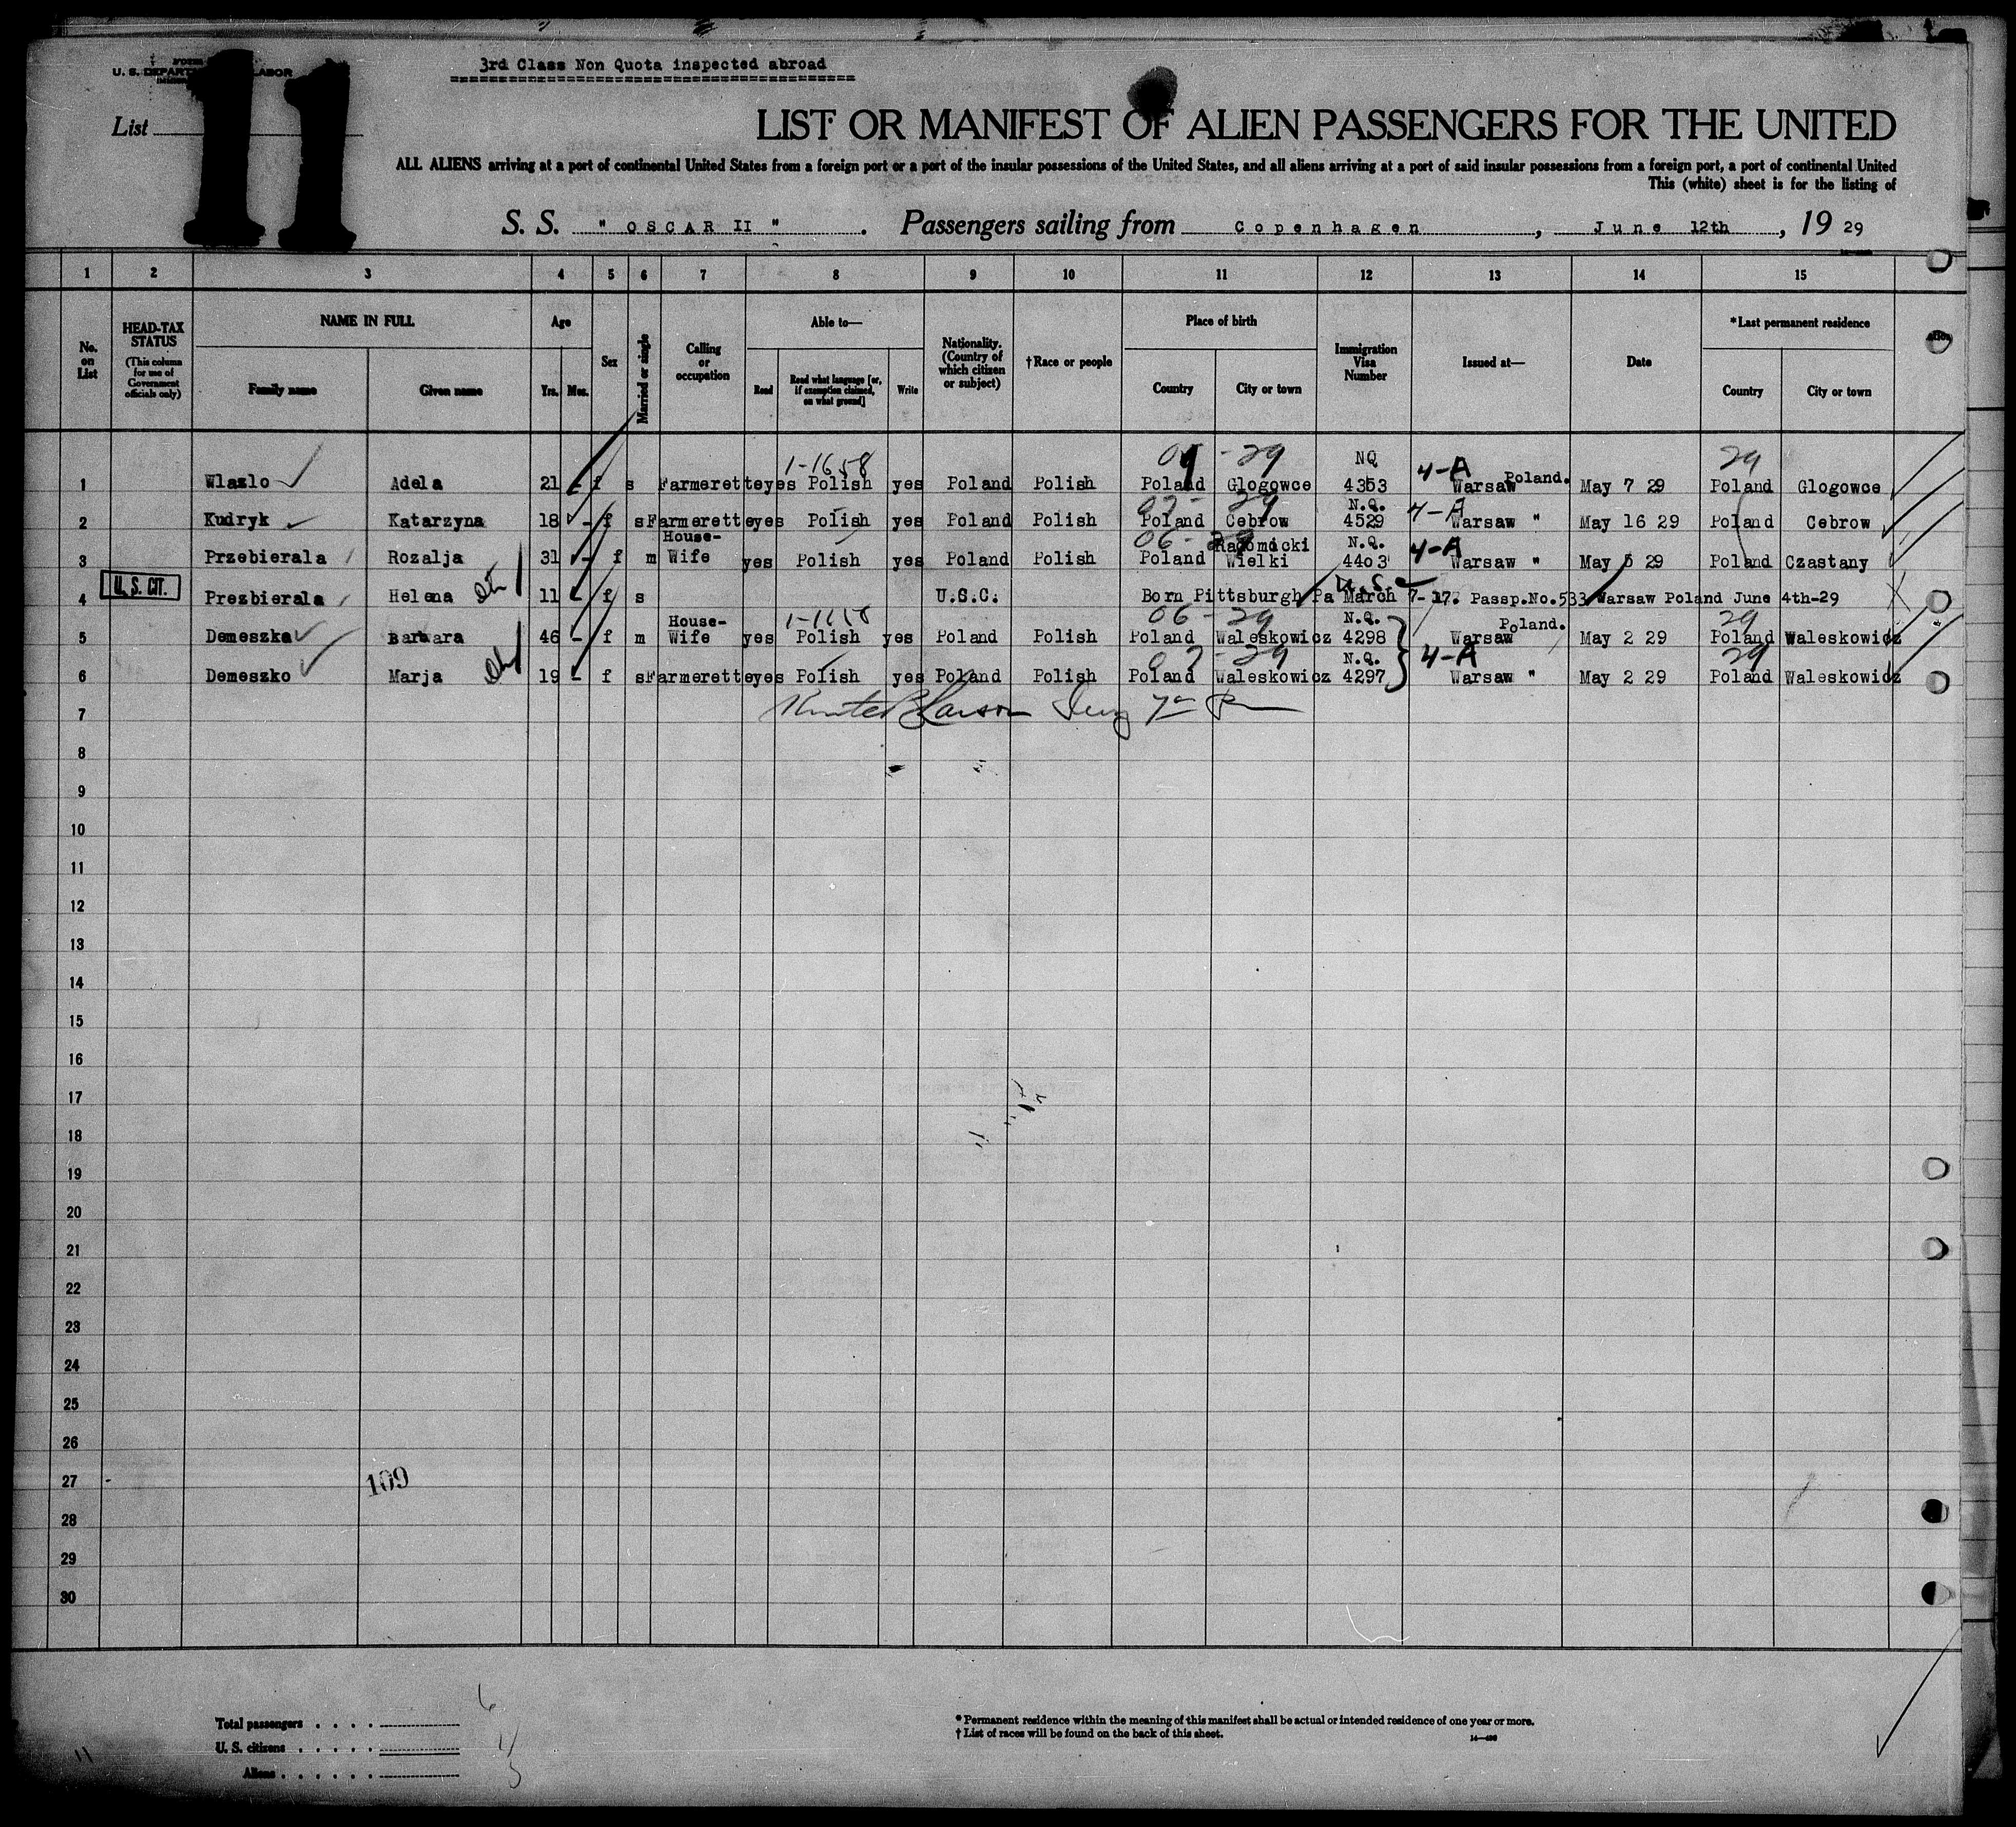 3rd Class Non Quota inspected abroad
FORM
U. S. DEPARTMENT LABOR
List 11
LIST OR MANIFEST OF ALIEN PASSENGERS FOR THE UNITED
ALL ALIENS arriving at a port of continental United States from a foreign port or a port of the insular possessions of the United States, and all aliens arriving at a port of said insular possessions from a foreign port, a port of continental United
This (white) sheet is for the listing of
S. S. " OSCAR II " . Passengers sailing from Copenhagen , June 12th , 19 29
1 2 3 4 5 6 7 8 9 10 11 12 13 14 15
No. on List
HEAD-TAX STATUS (This column for use of Government officials only)
NAME IN FULL
Family name Given name
Age
Yrs. Mos.
Sex
Married or single
Calling or occupation
Able to—
Read Read what language [or, if exemption claimed, on what ground] Write
Nationality. (Country of which citizen or subject)
†Race or people
Place of birth
Country City or town
Immigration Visa Number
Issued at—
Date
*Last permanent residence
Country City or town
1-1658 - 29 NQ 4-A 29
1 Wlazlo Adela 21 - f s Farmerette yes Polish yes Poland Polish Poland Glogowce 4353 Warsaw Poland. May 7 29 Poland Glogowce
07 - 29 N.Q. 4-A
2 Kudryk Katarzyna 18 - f s Farmerette yes Polish yes Poland Polish Poland Cebrow 4529 Warsaw " May 16 29 Poland Cebrow
06 - 29 N.Q. 4-A
3 Przebierala Rozalja 31 - f m House-Wife yes Polish yes Poland Polish Poland Radomicki Wielki 4403 Warsaw " May 5 29 Poland Czastany
U. S. CIT.
4 Prezbierala Helena 11 - f s U.S.C. Born Pittsburgh Pa March 7-17. Passp.No.533 Warsaw Poland June 4th-29
1-1658 06 - 29 N.Q. 29
5 Demeszka Barbara 46 - f m House-Wife yes Polish yes Poland Polish Poland Waleskowicz 4298 Warsaw Poland. May 2 29 Poland Waleskowicz
07 - 29 N.Q. 4-A 29
6 Demeszko Marja 19 - f s Farmerette yes Polish yes Poland Polish Poland Waleskowicz 4297 Warsaw " May 2 29 Poland Waleskowicz
7
8
9
10
11
12
13
14
15
16
17
18
19
20
21
22
23
24
25
26
27 109
28
29
30
Total passengers . . . . 6
U. S. citizens . . . . .
Aliens . . . . . . 5
* Permanent residence within the meaning of this manifest shall be actual or intended residence of one year or more.
† List of races will be found on the back of this sheet.
11